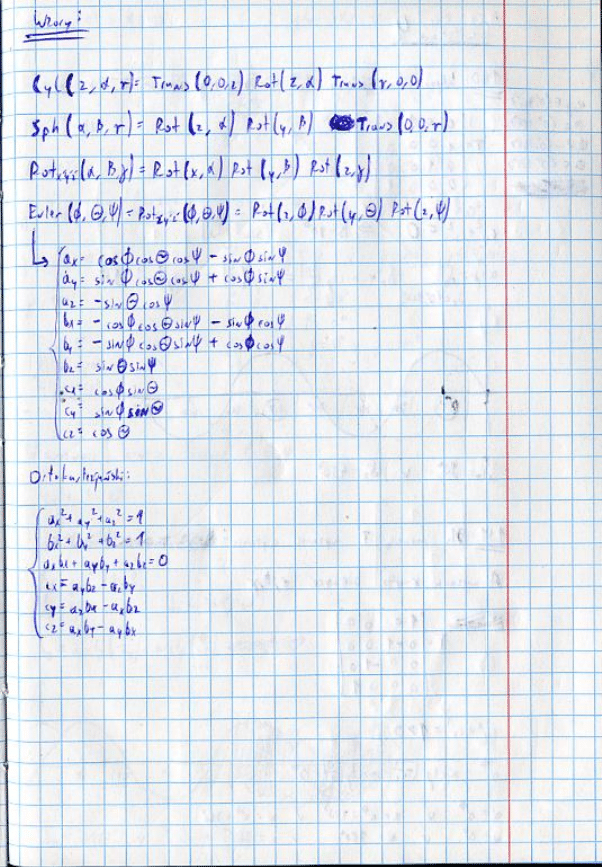 Wzory:
Cyl(z, α, r) = Trans(0,0,z) Rot(z,α) Trans(r,0,0)
Sph(α, β, r) = Rot(z, α) Rot(y, β) Trans(0,0,r)
(α, β, γ) = Rot(x,α) Rot(y,β) Rot(z,γ)
Euler(ϕ, Θ, Ψ) = (ϕ,Θ,Ψ) = Rot(z,ϕ) Rot(y,Θ) Rot(z,Ψ)
ax = cosϕ cosΘ cosΨ - sinϕ sinΨ
ay = sinϕ cosΘ cosΨ + cosϕ sinΨ
az = -sinΘ cosΨ
bx = -cosϕ cosΘ sinΨ - sinϕ cosΨ
by = -sinϕ cosΘ sinΨ + cosϕ cosΨ
bz = sinΘ sinΨ
cx = cosϕ sinΘ
cy = sinϕ sinΘ
cz = cosΘ
ax² + ay² + az² = 1
bx² + by² + bz² = 1
axbx + ayby + azbz = 0
cx = aybz - azby
cy = azbx - axbz
cz = axby - aybx